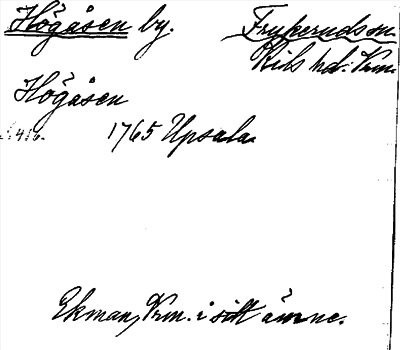 Högåsen by. Frykeruds sn.
Kils hd. Vrm.
Högåsen
1765 Upsala.
Ekman, Vrm. i sitt ämne.